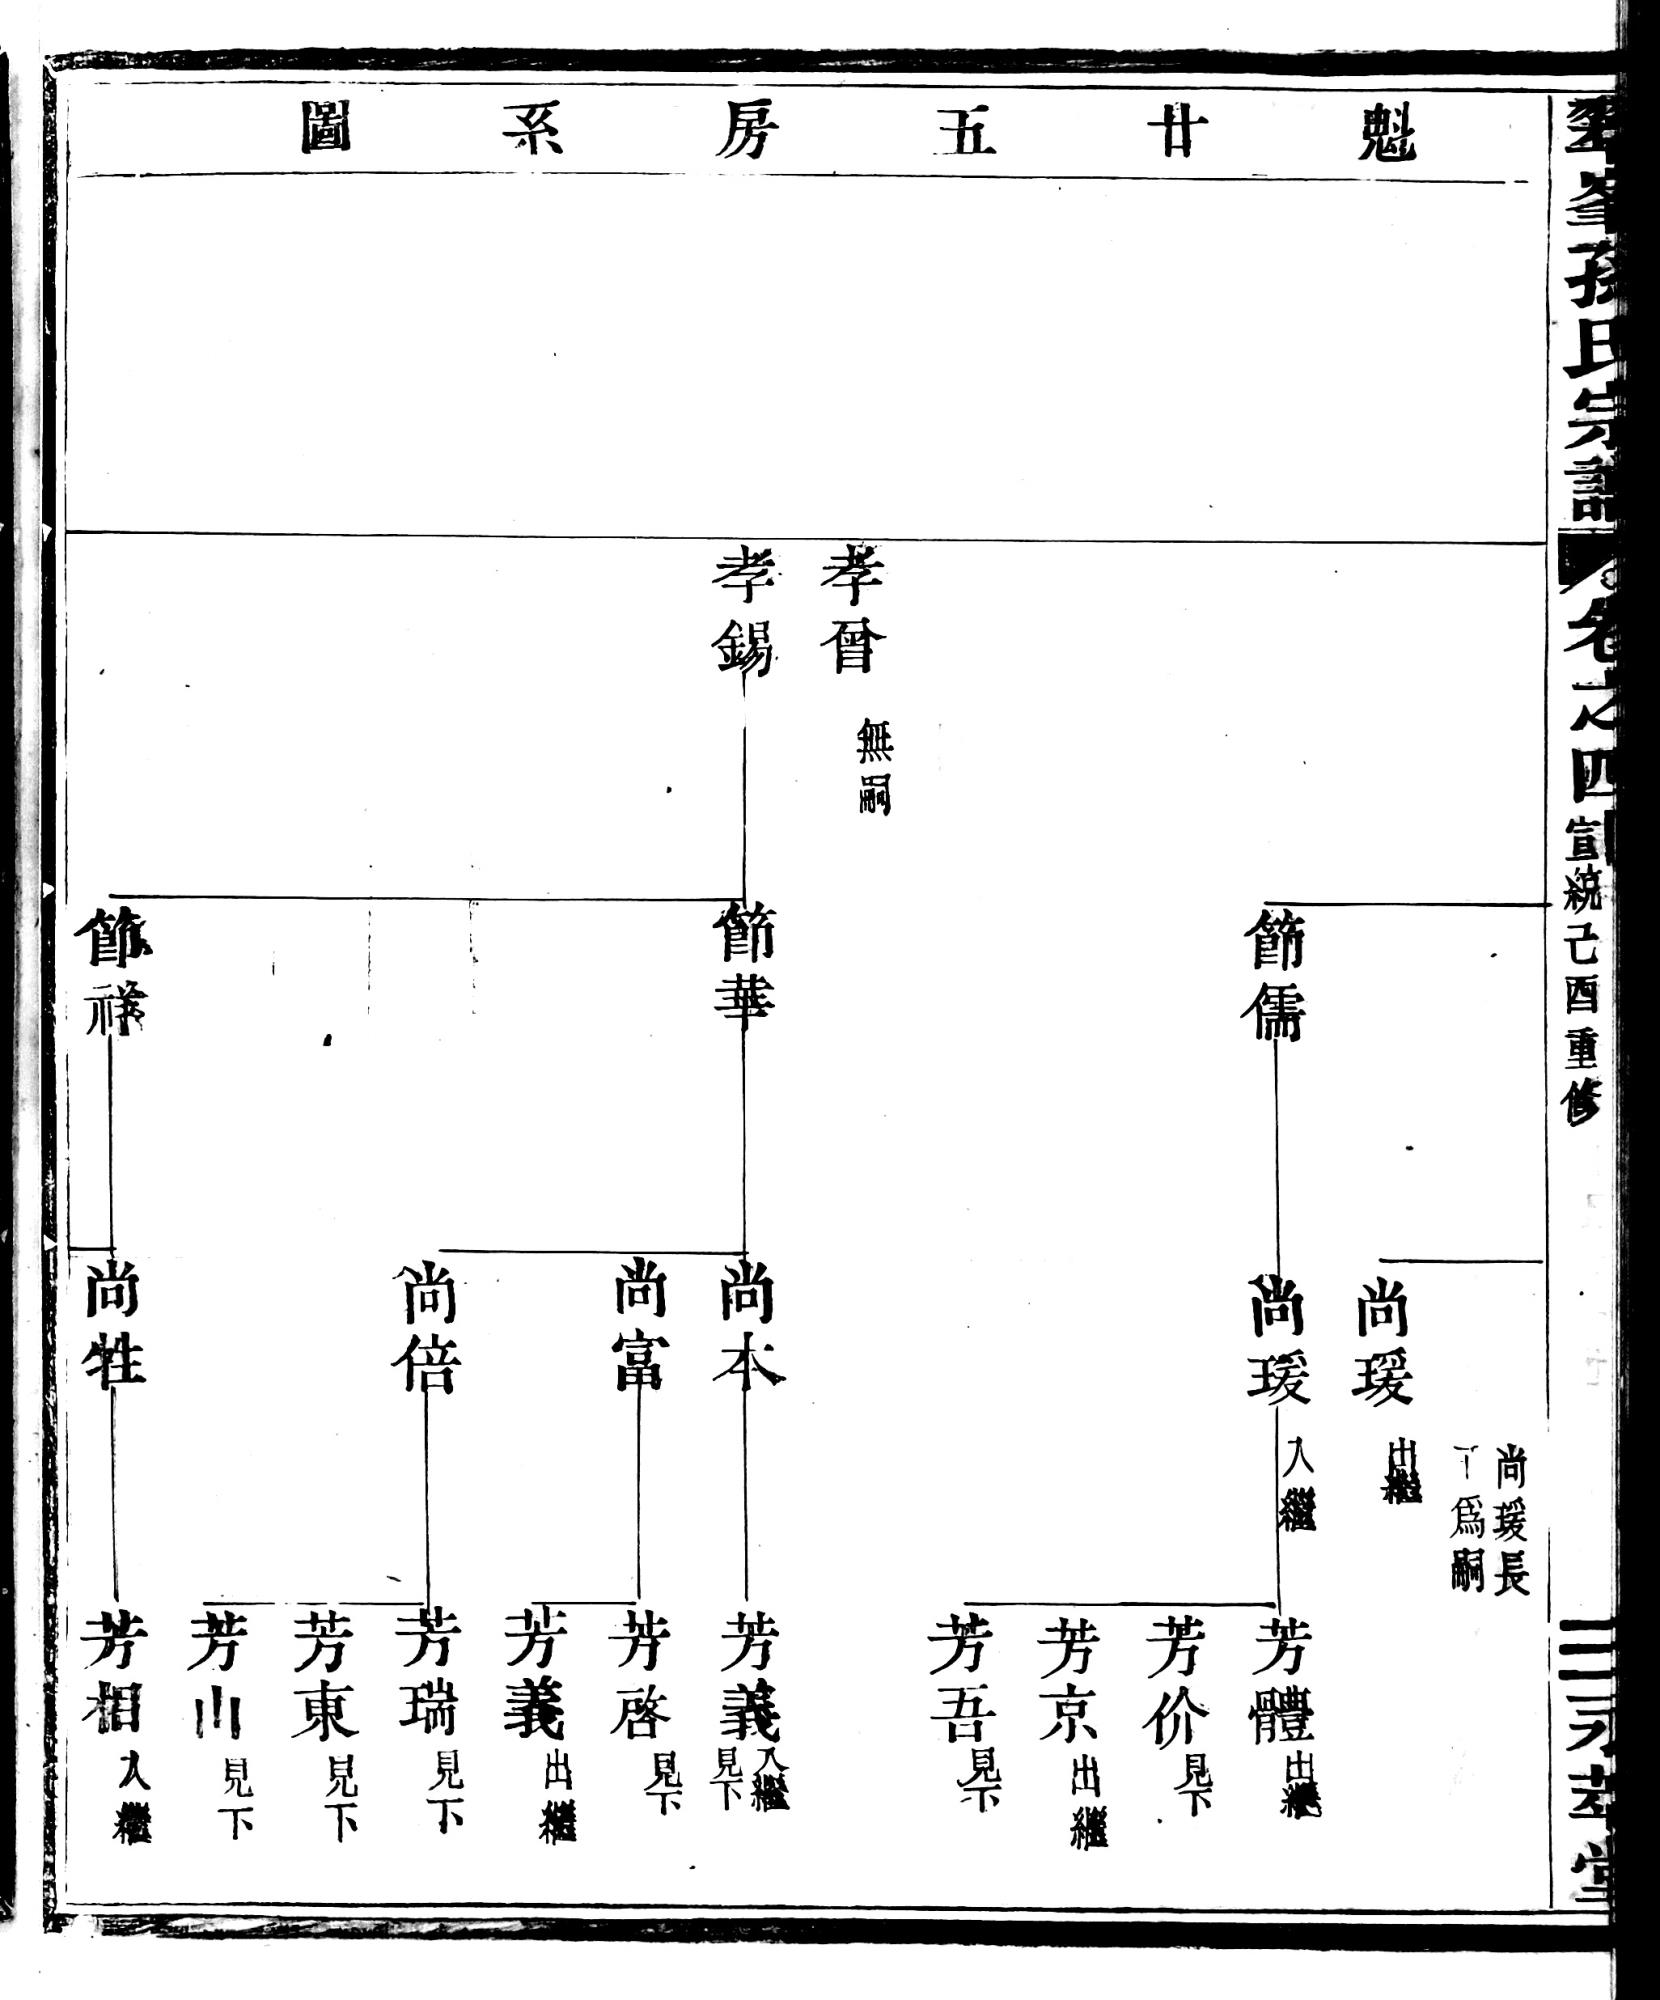 魁廿五房系圖
峯孫氏宗譜
卷之四
宣統己酉重修
三
永萃堂
孝曾
無嗣
孝錫
節儒
節華
節祥
尚瑗長
丁為嗣
尚瑗
出繼
尚瑗
入繼
尚本
尚富
尚倍
尚牲
芳體
出繼
芳价
見下
芳京
出繼
芳吾
見下
芳義
入繼
見下
芳啓
見下
芳義
出繼
芳瑞
見下
芳東
見下
芳山
見下
芳相
入繼